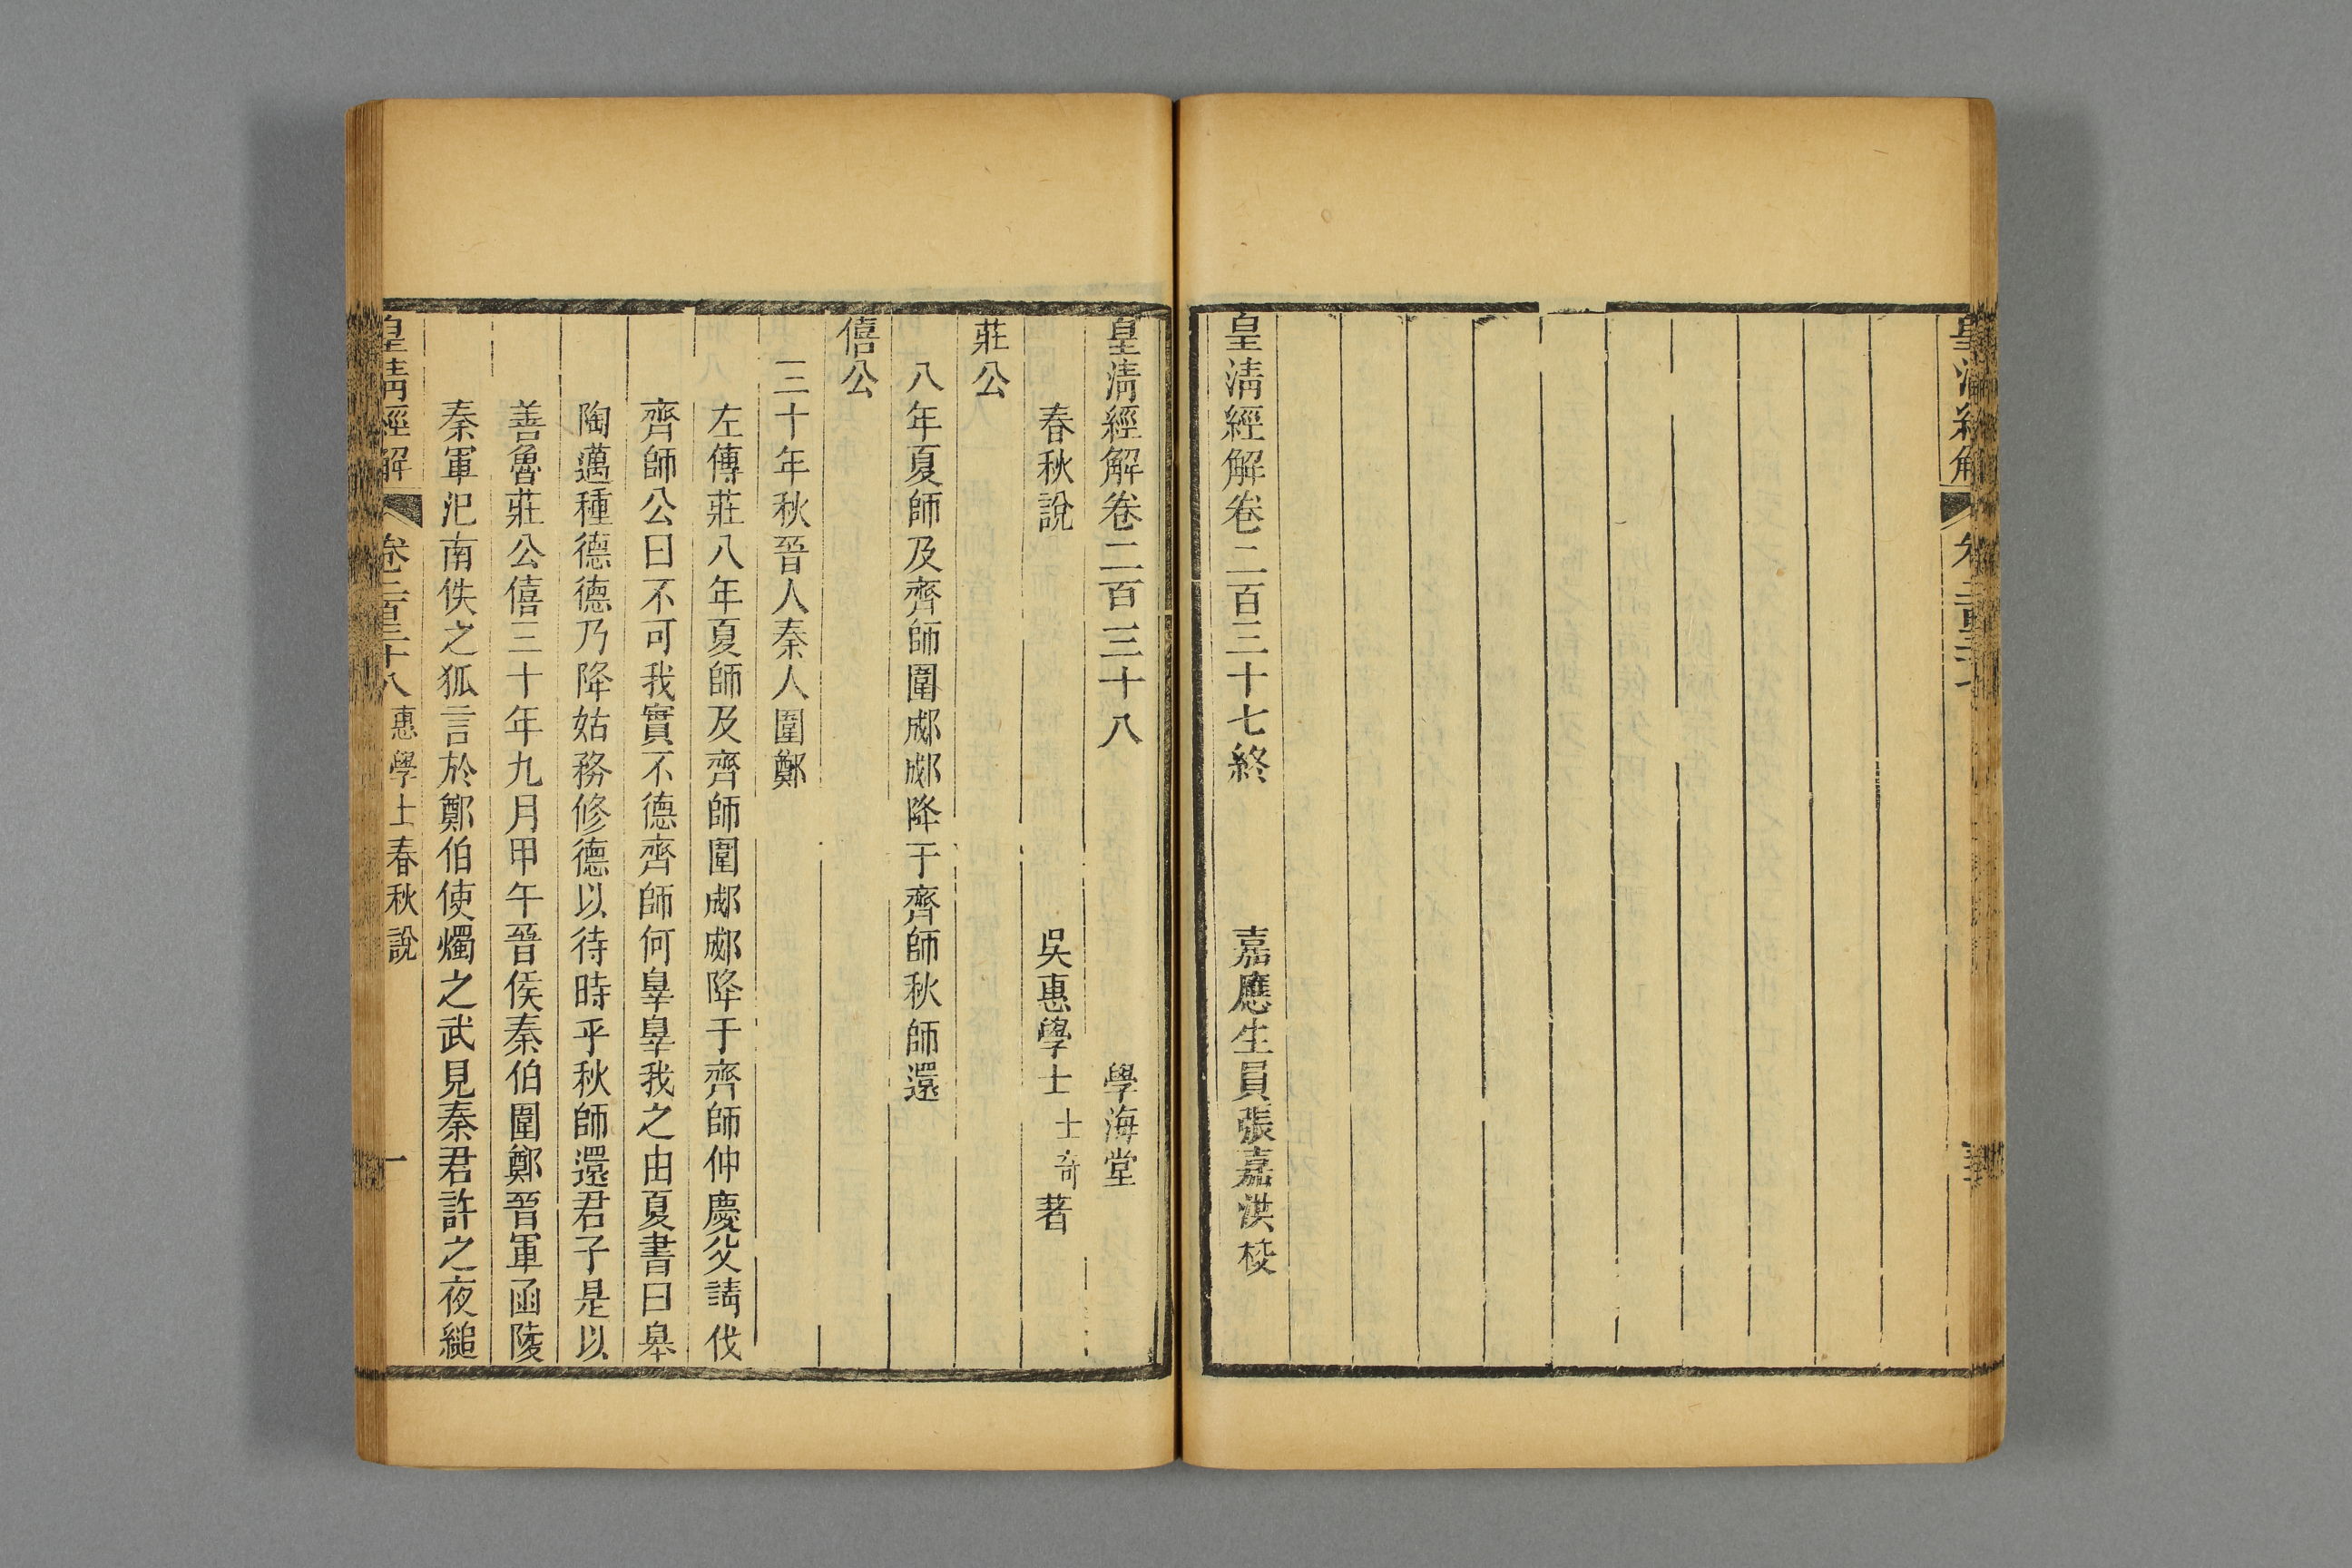 皇清經解卷二百三十七終　嘉應生員張嘉洪校
皇清經解卷二百三十八　學海堂
春秋說　吳惠學士士奇著
莊公
八年夏師及齊師圍郕郕降于齊師秋師還
僖公
三十年秋晉人秦人圍鄭
左傳莊八年夏師及齊師圍郕郕降于齊師仲慶父請伐
齊師公曰不可我實不德齊師何辠辠我之由夏書曰皋
陶邁種德德乃降姑務修德以待時乎秋師還君子是以
善魯莊公僖三十年九月甲午晉侯秦伯圍鄭晉軍函陵
秦軍氾南佚之狐言於鄭伯使燭之武見秦君許之夜縋
皇清經解　卷二百三十八　惠學士春秋說　一